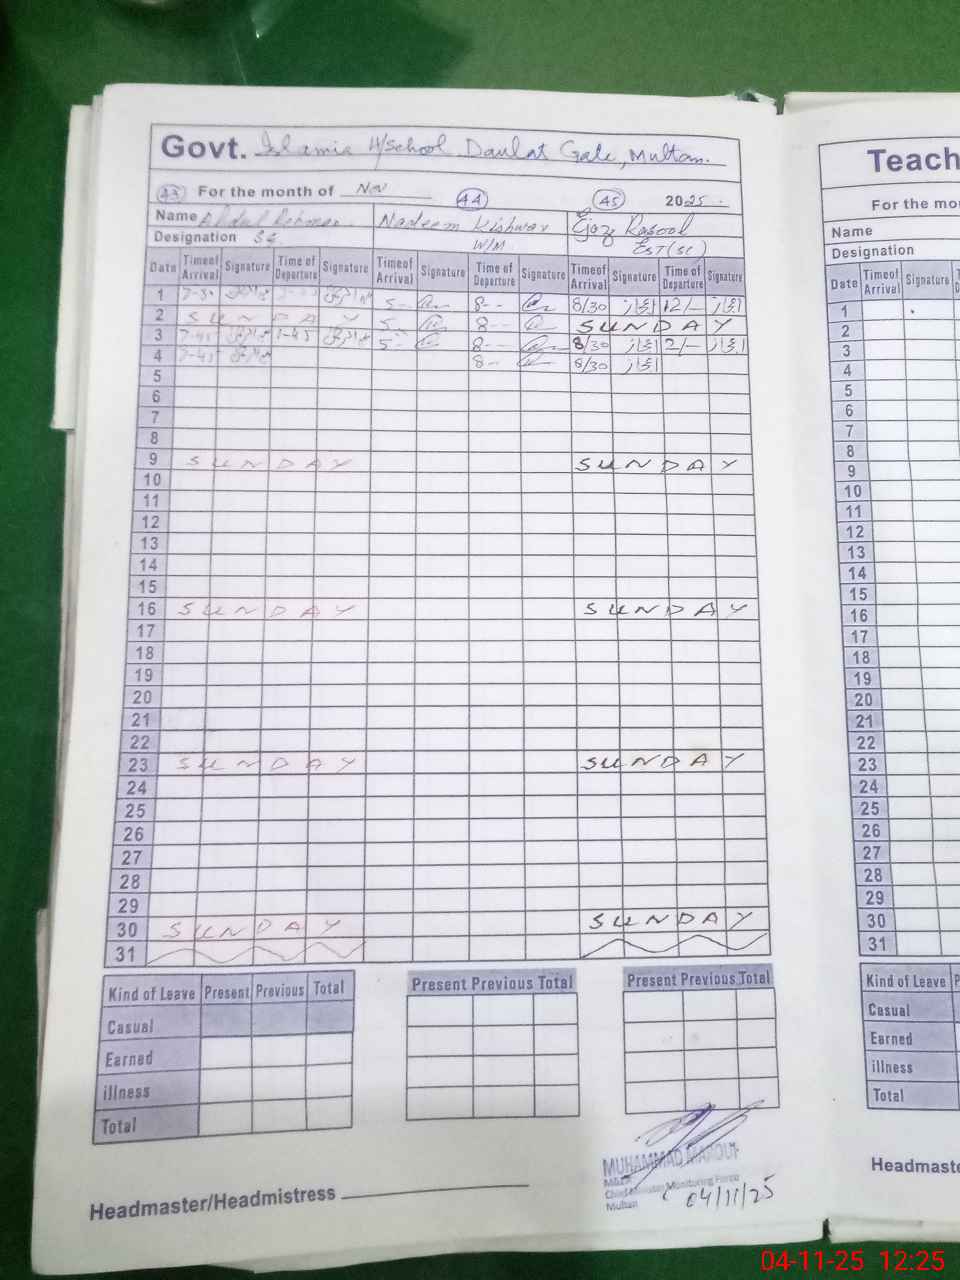 Govt. Islamia H/School Daulat Gate, Multan.
43 For the month of Nov 44 45 2025
Name Abdul Rehman Nadeem Kishwar Ejaz Rasool
Designation SG W/M EST (SC)
Date Timeof Arrival Signature Time of Departure Signature Timeof Arrival Signature Time of Departure Signature Timeof Arrival Signature Time of Departure Signature
1 7-30 5-- 8-- 8/30 اعجاز 12/- اعجاز
2 SUNDAY 5-- 8-- SUNDAY
3 7-45 1-45 5-- 8-- 8/30 اعجاز 2/- اعجاز
4 7-45 8-- 8/30 اعجاز
5
6
7
8
9 SUNDAY SUNDAY
10
11
12
13
14
15
16 SUNDAY SUNDAY
17
18
19
20
21
22
23 SUNDAY SUNDAY
24
25
26
27
28
29
30 SUNDAY SUNDAY
31
Kind of Leave Present Previous Total Present Previous Total Present Previous Total
Casual
Earned
illness
Total
MUHAMMAD MAROUF
Chief Minister Monitoring Force
Multan 04/11/25
Headmaster/Headmistress
Teach
For the mo
Name
Designation
Date Timeof Arrival Signature
1
2
3
4
5
6
7
8
9
10
11
12
13
14
15
16
17
18
19
20
21
22
23
24
25
26
27
28
29
30
31
Kind of Leave P
Casual
Earned
illness
Total
Headmaste
04-11-25 12:25